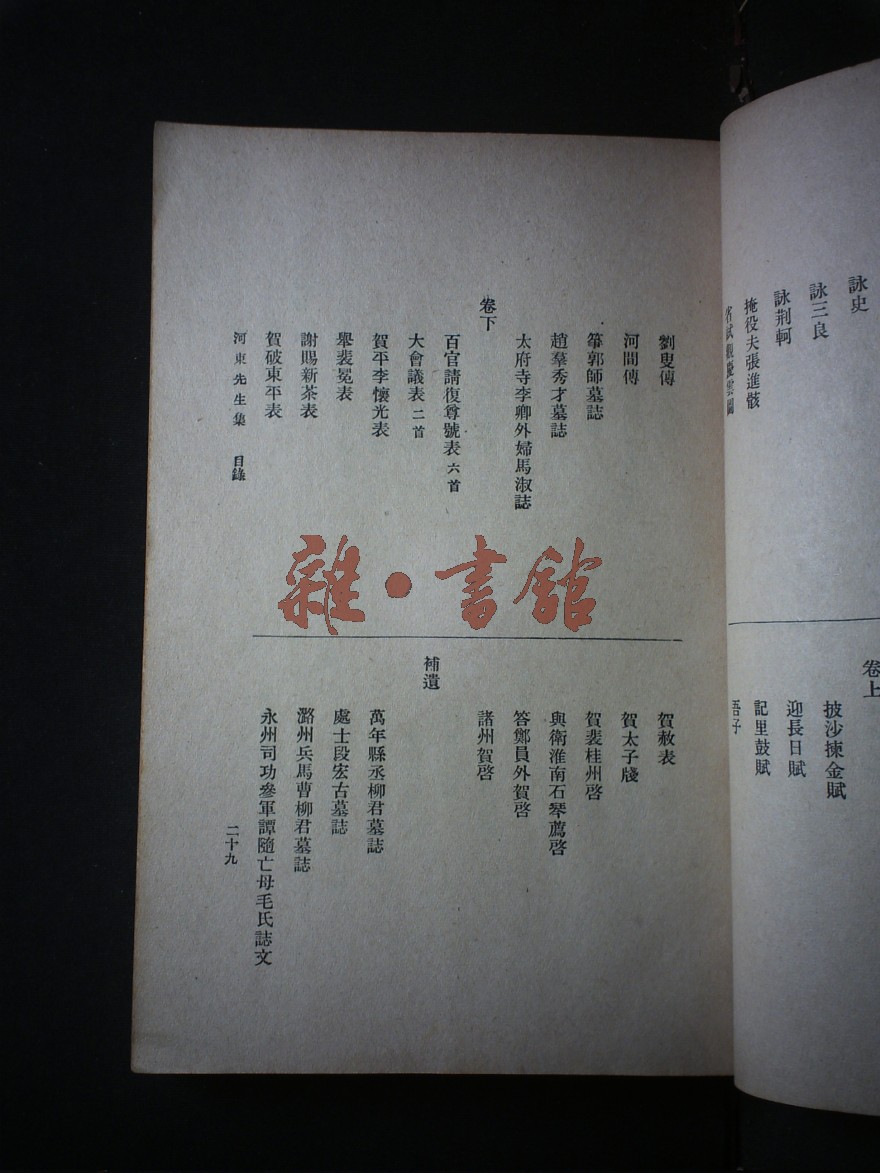 詠史
詠三良
詠荊軻
掩役夫張進骸
省試觀慶雲圖
卷上
披沙揀金賦
迎長日賦
記里鼓賦
吾子
劉叟傳
河間傳
箏郭師墓誌
趙羣秀才墓誌
太府寺李卿外婦馬淑誌
卷下
百官請復尊號表 六首
大會議表 二首
賀平李懷光表
舉裴冕表
謝賜新茶表
賀破東平表
賀赦表
賀太子牋
賀裴桂州啓
與衛淮南石琴薦啓
答鄭員外賀啓
諸州賀啓
補遺
萬年縣丞柳君墓誌
處士段宏古墓誌
潞州兵馬曹柳君墓誌
永州司功參軍譚隨亡母毛氏誌文
河東先生集 目錄
二十九
雜·書館